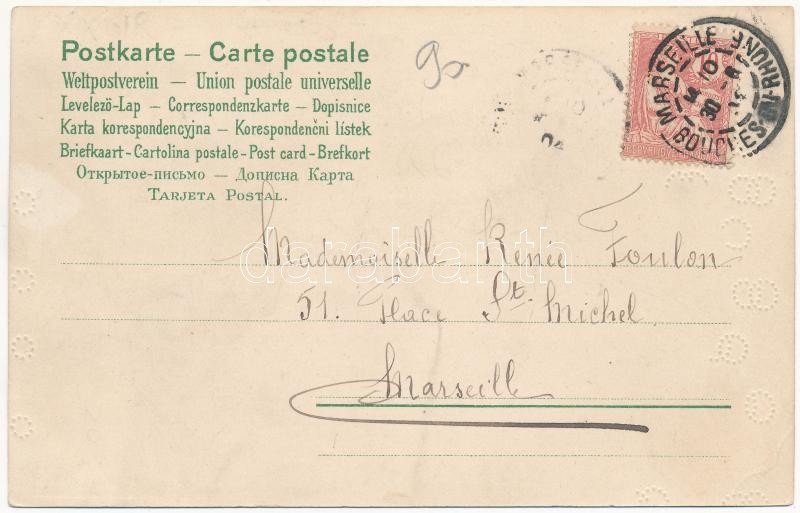 Postkarte – Carte postale
Weltpostverein – Union postale universelle
Levelező-Lap – Correspondenzkarte – Dopisnice
Karta korespondencyjna – Korespondenční lístek
Briefkaart – Cartolina postale – Post card – Brefkort
Открытое-письмо – Дописна Карта
TARJETA POSTAL.
90
MARSEILLE
BOUCHES-DU-RHONE
10
30
04
Mademoiselle Renée Toulon
51. Place St. Michel
Marseille
darabanth